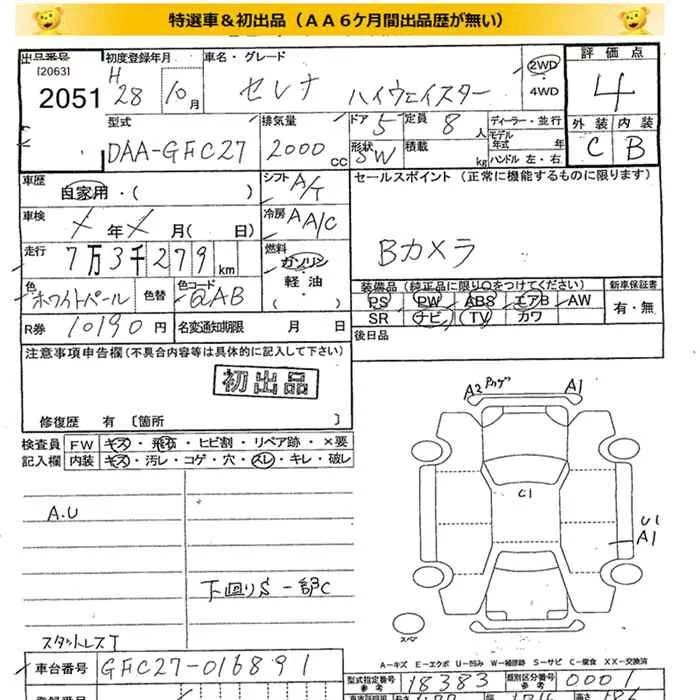 特選車＆初出品（ＡＡ６ケ月間出品歴が無い）
出品番号 初度登録年月 車名・グレード 2WD 評価点
[2063] H セレナ ハイウェイスター 4WD 4
2051 28 10月
型式 排気量 ドア 5 定員 8人 ディーラー・並行 外装 内装
DAA-GFC27 2000cc 形状 SW 積載 kg モデル年式 年 C B
ハンドル 左・右
車歴 自家用・( ) シフト A/T セールスポイント（正常に機能するものに限ります）
車検 年 月( 日) 冷房 A A/C
走行 7万3千279km 燃料 ガソリン 軽油 ( ) Bカメラ
色 ホワイトパール 色替 色コード QAB 装備品（純正品に限り○をつけてください） 新車保証書
PS PW ABS エアB AW 有・無
SR ナビ TV カワ
R券 10190円 名変通知期限 月 日 後日品
注意事項申告欄（不具合内容等は具体的に記入して下さい）
初出品
修復歴 有〔箇所 〕
検査員 FW キズ・飛石・ヒビ割・リペア跡・×要
記入欄 内装 キズ・汚レ・コゲ・穴・スレ・キレ・破レ
A2 アカゲ A1
C1
A.U
U1
A1
下回りS 一部C
スタットレスT
スペア
A－キズ E－エクボ U－凹み W－補修跡 S－サビ C－腐食 XX－交換済
車台番号 GFC27-016891
型式指定番号 参考 18383 類別区分番号 参考 0001